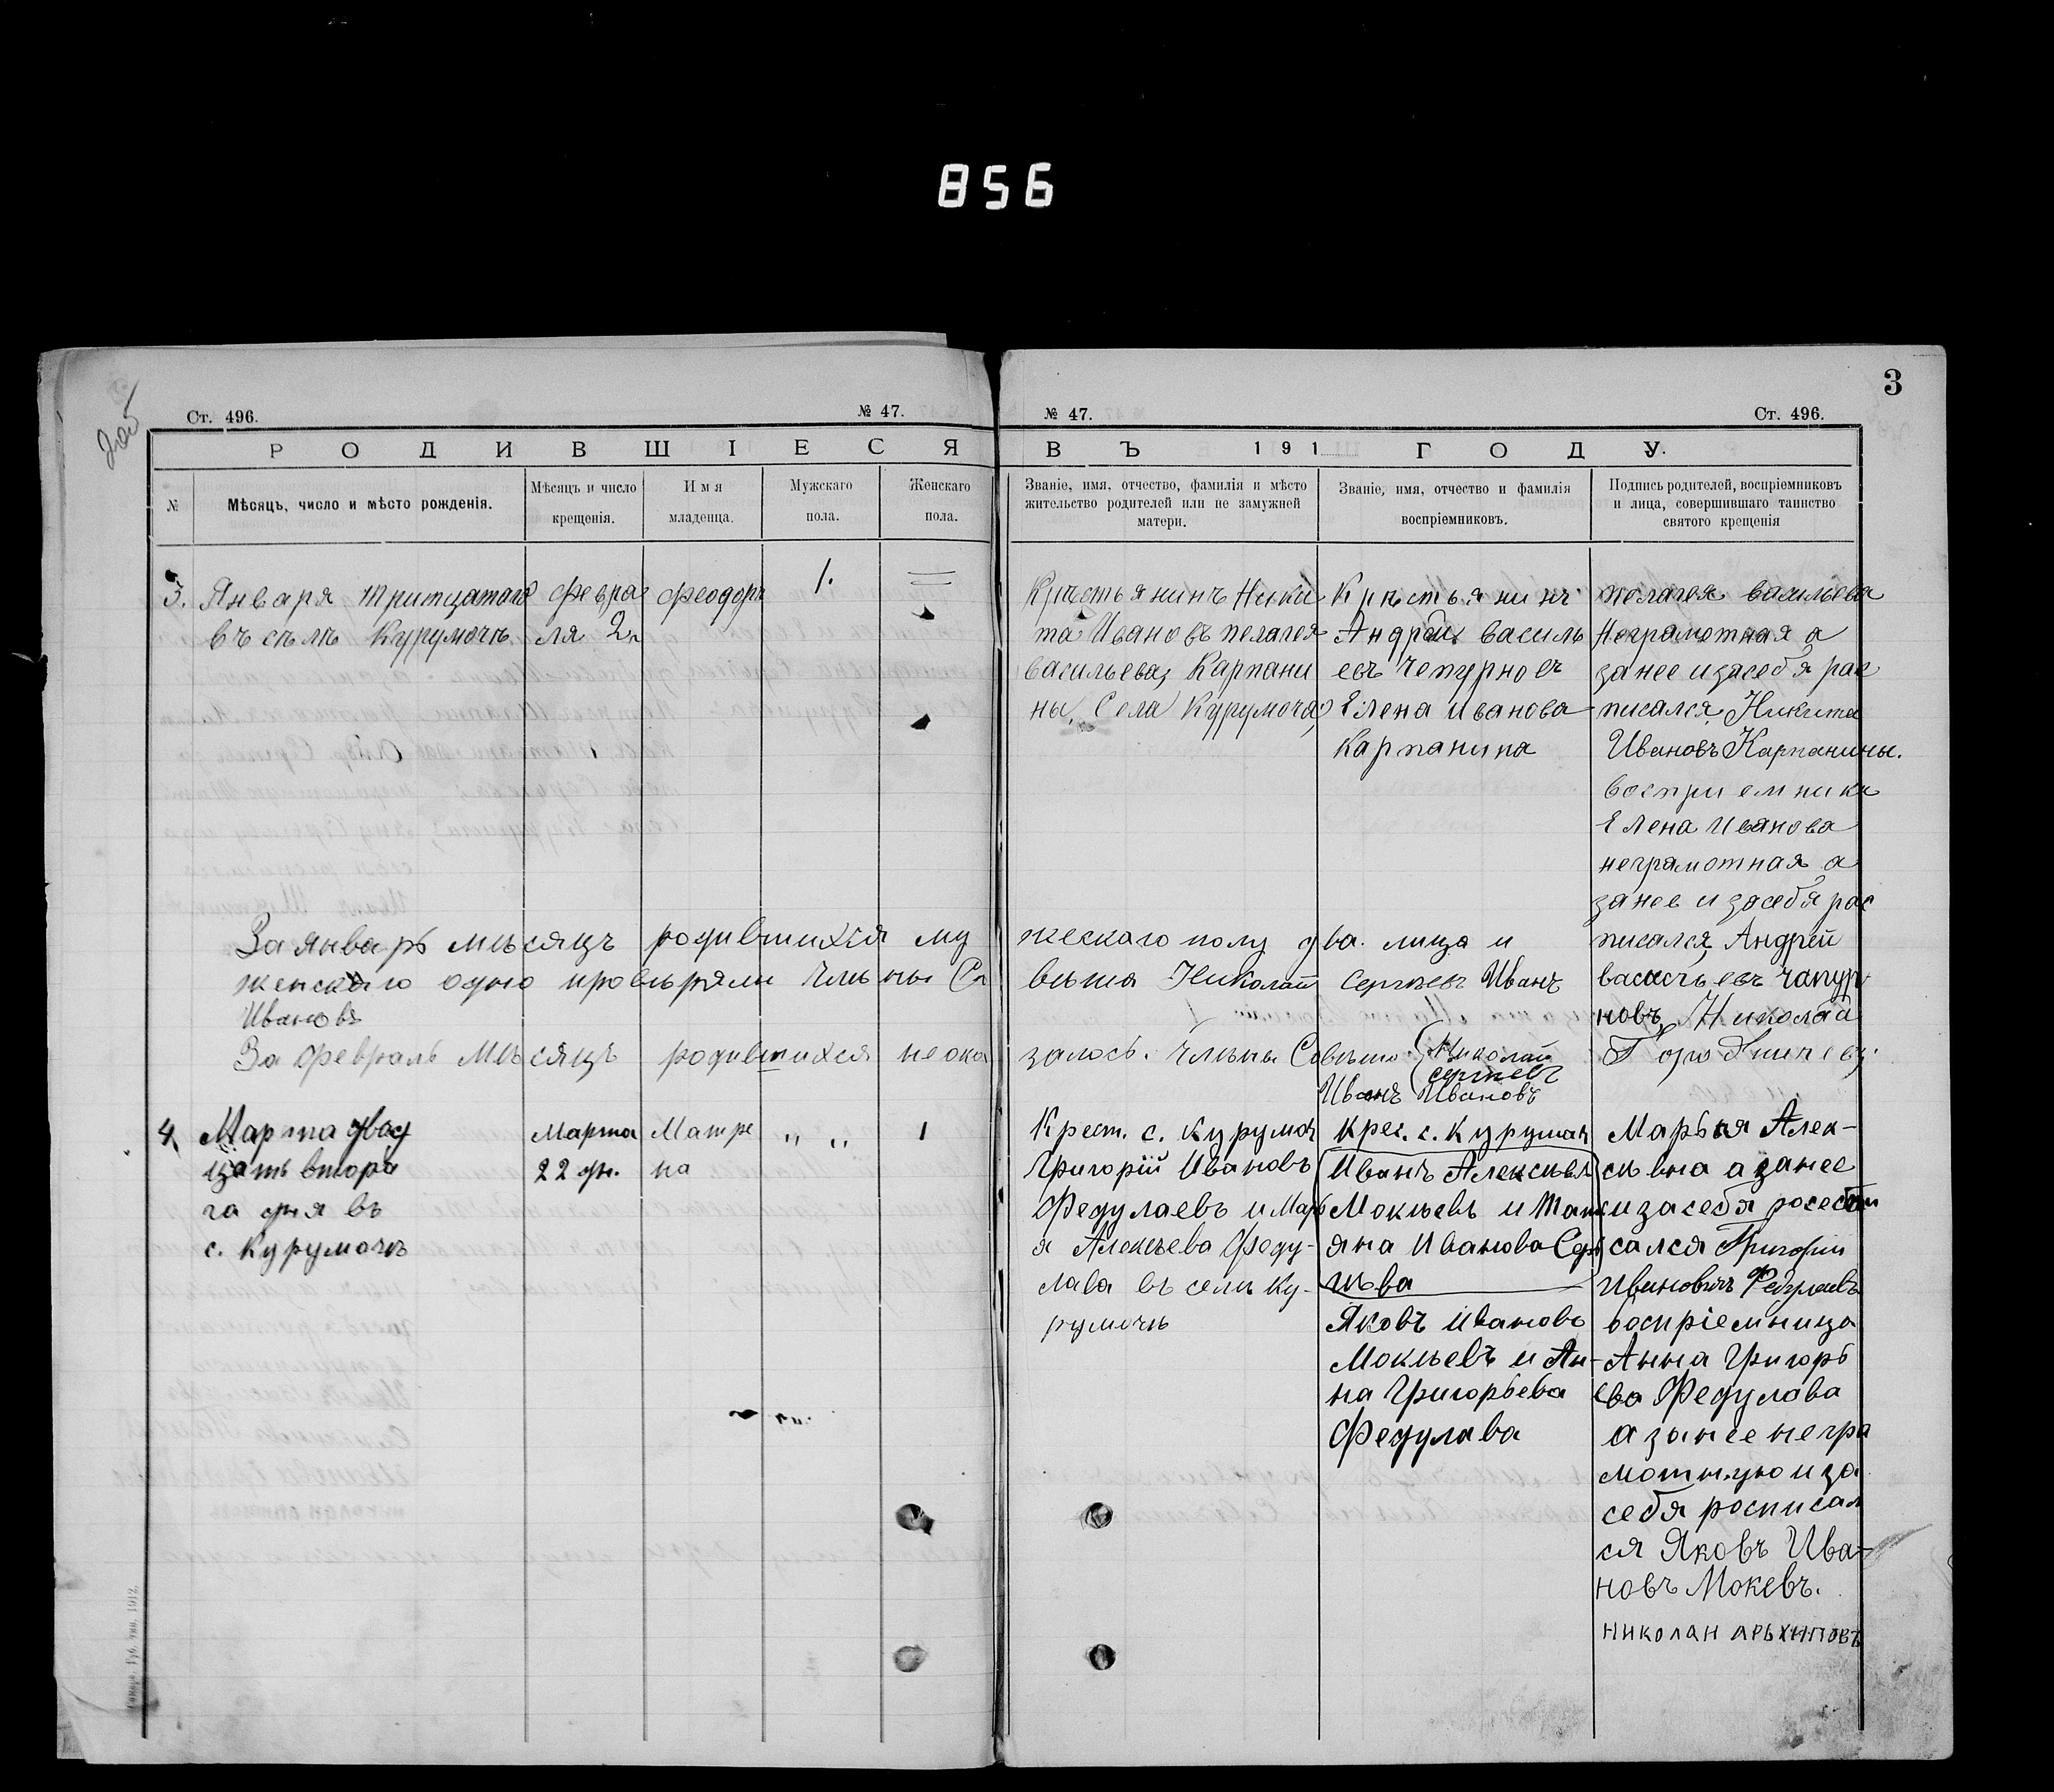 856
3
Ст. 496.
№ 47.
№ 47.
Ст. 496.
РОДИВШІЕСЯ
ВЪ 191 ГОДУ.
№
Мѣсяцъ, число и мѣсто рожденія.
Мѣсяцъ и число
крещенія.
Имя
младенца.
Мужскаго
пола.
Женскаго
пола.
Званіе, имя, отчество, фамилія и мѣсто
жительство родителей или не замужней
матери.
Званіе, имя, отчество и фамилія
воспріемниковъ.
Подпись родителей, воспріемниковъ
и лица, совершившаго таинство
святого крещенія
3.
Января тритцатого
въ сѣлѣ Курумочѣ
февра
ля 2го
феодоръ
1.
Крѣстьянинъ Ники
та Ивановъ пелагея
васильева, Карпани
ны, Села Курумоча
Крѣстьянинъ
Андрѣй василь
евъ Чепурновъ
Елена иванова
карпанина
пелагея васильева
Неграмотная а
занее изасебя рас
писался Никита
Ивановъ Карпанины.
восприемники
Елена Иванова
неграмотная а
занее изасебя рас
писался Андрей
васильевъ чапур
новъ, Николай
За январь мѣсяцъ родившихся му
жескаго полу два лица и
женскаго одно провѣряли Члѣны Со
вѣта Николай Сергѣевъ Иванъ
Ивановъ
За февраль мѣсяцъ родившихся неока
залось. Члѣны Совѣта: Николай
Сергѣевъ
Иванъ Ивановъ
4
Марта двад
цать втора
га дня въ
с. Курумочѣ
Марта
22 дн.
Матре
на
„ „
1
Крест. с. Курумоч
Григорій Ивановъ
Федулаевъ и Марь
я Алексѣева Феду-
лава въ селѣ Ку-
румочѣ
Крес. с. Курумоч
Иванъ Алексѣевъ
Мокѣевъ и Тать
яна Иванова Сер
гѣева
Яковъ Ивановъ
Мокѣевъ и Ан-
на Григорьева
Федулава
Марья Алек-
сѣвна а занее
изасебя
сался Григорий
Ивановичъ Федулаевъ
воспріемница
Анна Григорь
ева Федулава
а занее негра
мотную и за
себя росписал
ся Яковъ Ива-
новъ Мокевъ.
николаи арьхиповъ
Самар. Губ. тип. 1912.